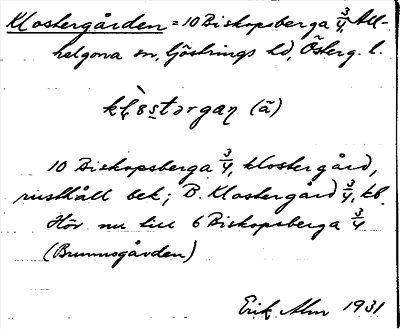 Klostergården = 10 Biskopsberga 3/4, All-
helgona sn, Göstrings hd, Österg. l.
klòstərgaɳ (ã)
10 Biskopsberga 3/4, klostergård,
rusthåll bek; B. Klostergård 3/4, kb.
Hör nu till 6 Biskopsberga 3/4
(Brunnsgården)
Erik Alm 1931